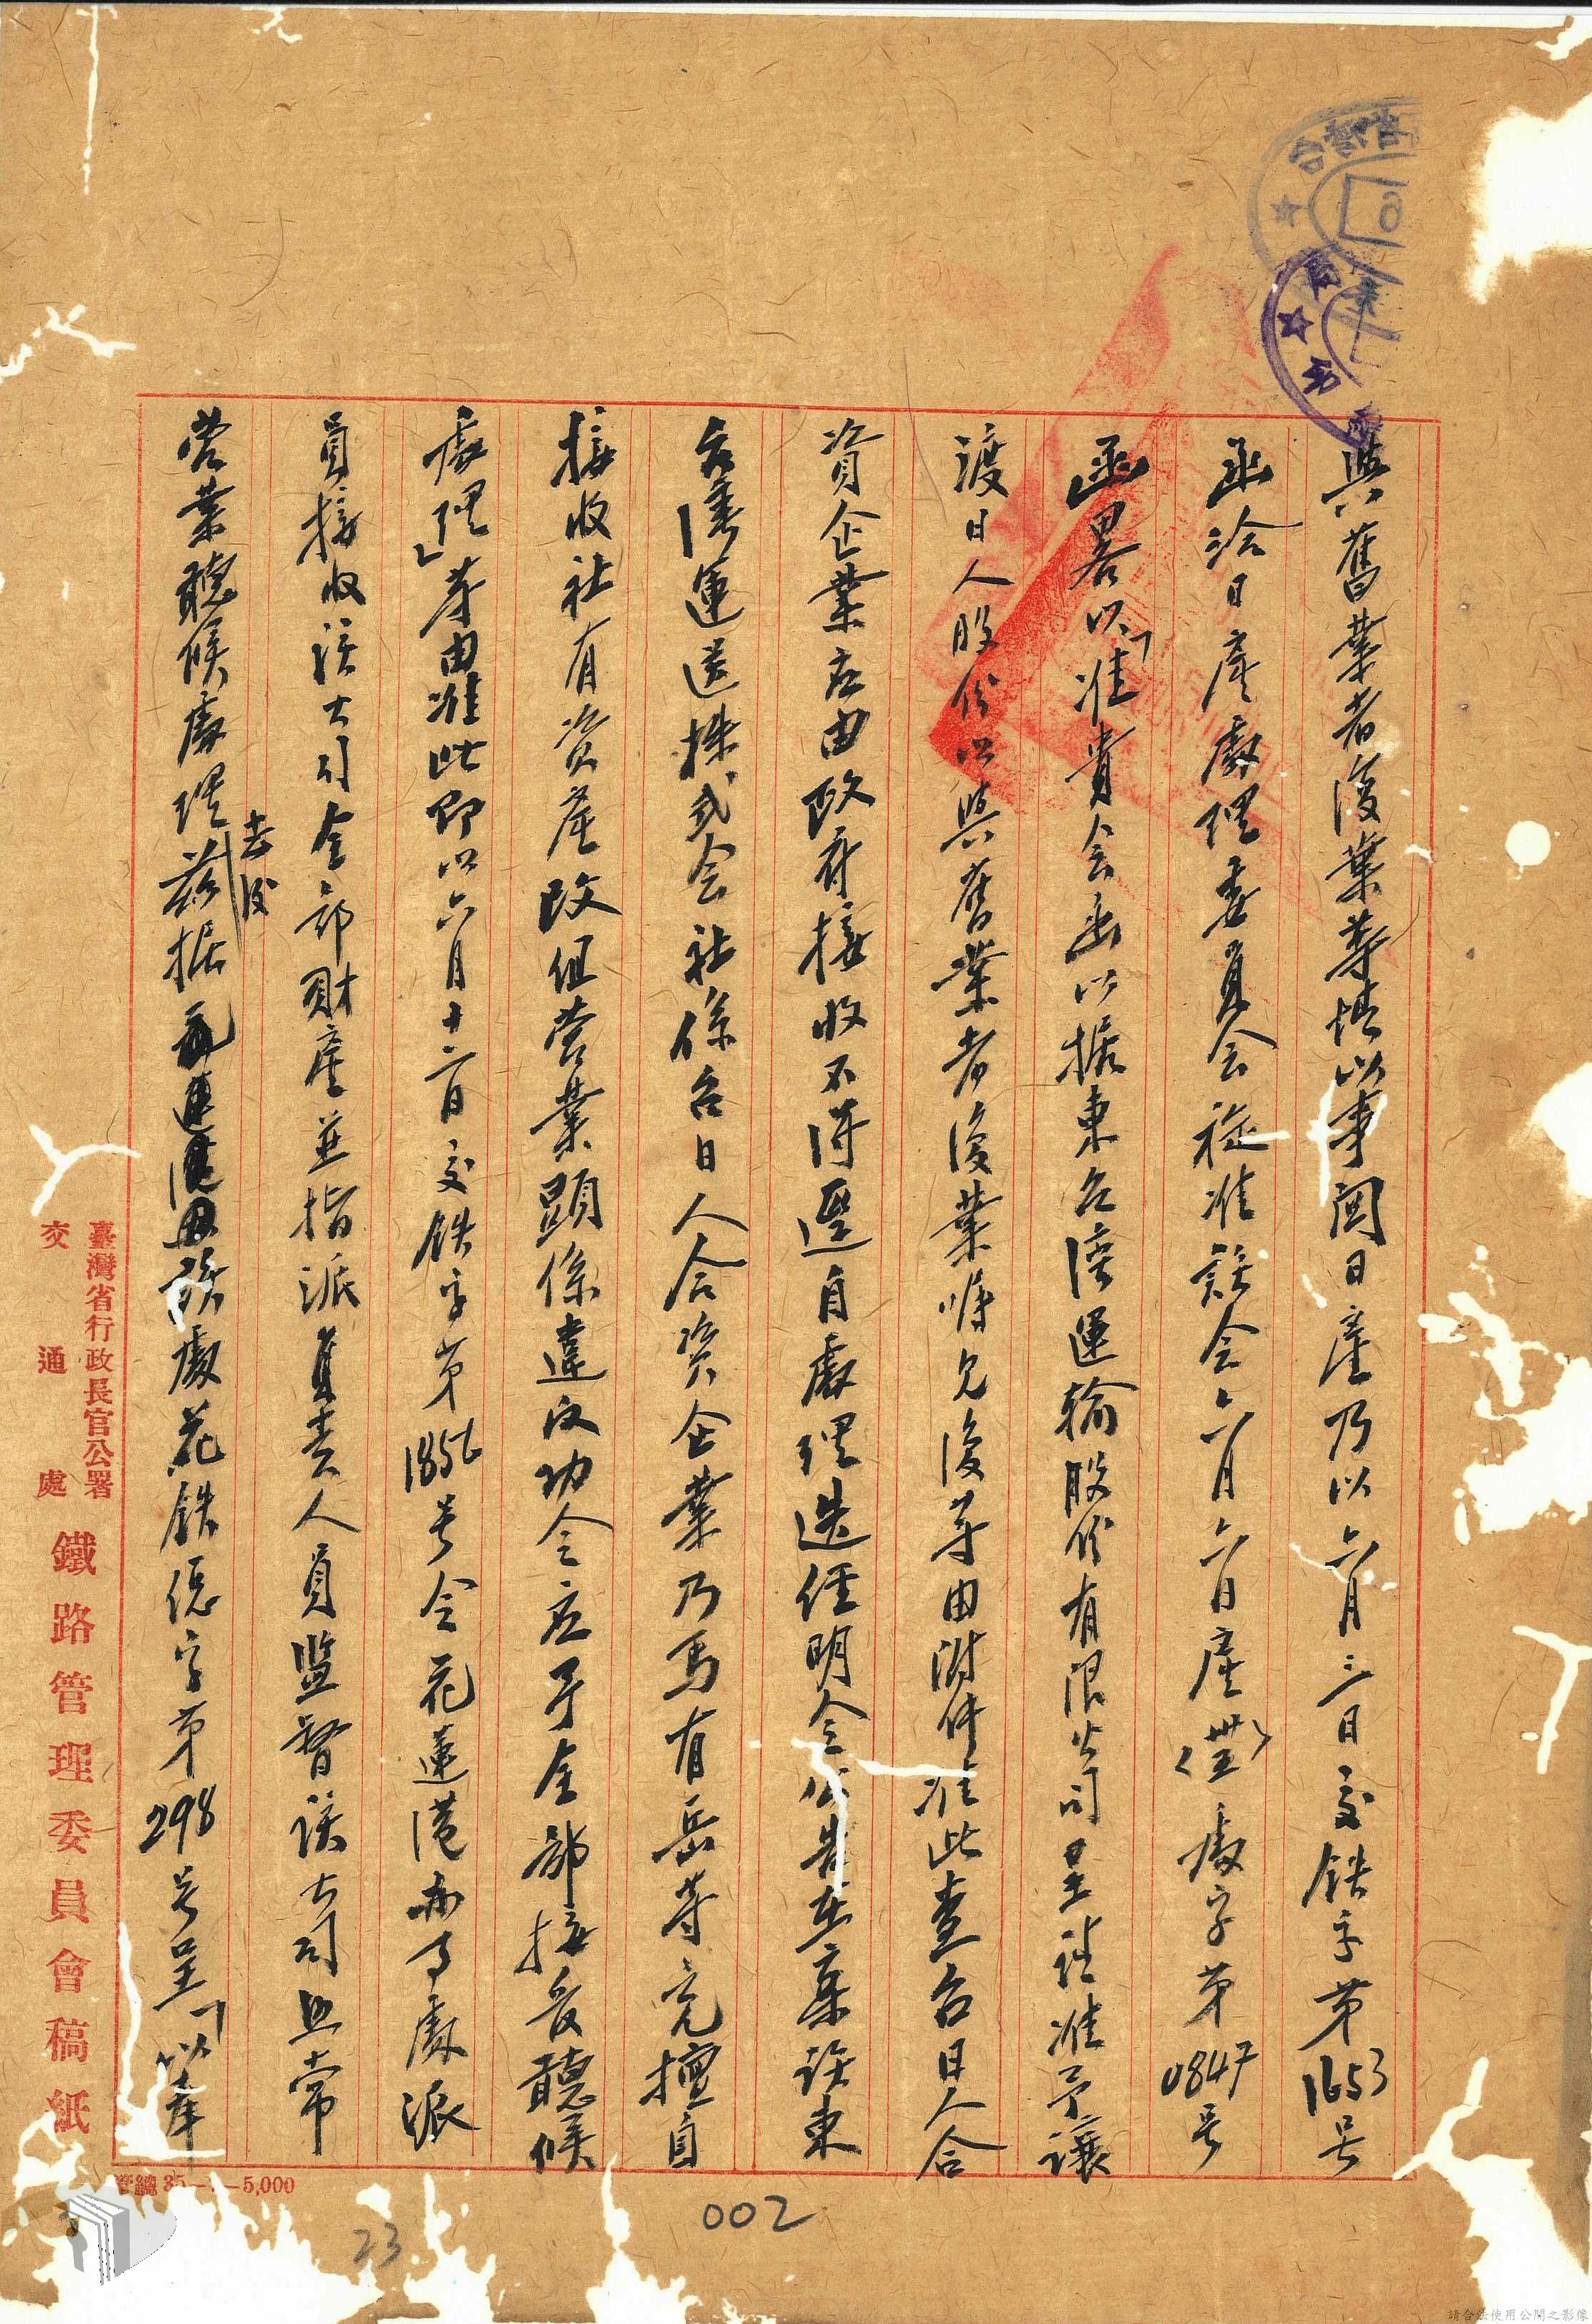 與舊業者復業等情以事關日產乃以六月三日交鉄字第1653号
函洽日產處理委員会旋准該会六月六日產(卅五)處字第0847号
函畧以「准貴会函以据東台湾運輸股份有限公司呈請准予讓
渡日人股份以與舊業者復業嘱允復等由附件准此查台日人合
資企業应由政府接收不得逕自處理迭經明令公告在案該東
台湾運送株式会社係台日人合資企業乃馬有岳等竟擅自
接收社有資產改組營業顯係違反功令应予全部接收聽候
處理」等由准此即以六月十二日交鉄字第1856号令花蓮港办事處派
員接收該公司全部財產並指派負責人員監督該公司照常
營業聽候處理
去後
茲据該處花鉄總字第298号呈「以奉
臺灣省行政長官公署
交通處
鐵路管理委員會稿紙
5,000
002
23
請合法使用公開之影像